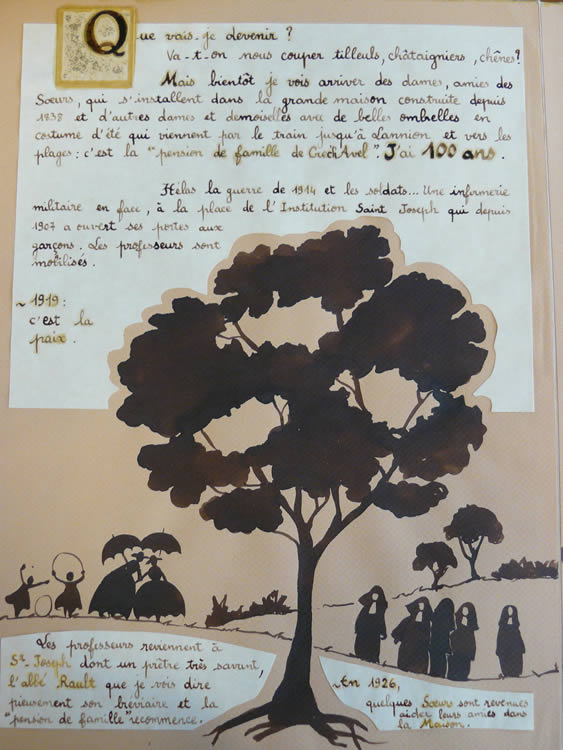 Que vais-je devenir ?
Va-t-on nous couper tilleuls, châtaigniers, chênes ?
Mais bientôt je vois arriver des dames, amies des
Sœurs, qui s'installent dans la grande maison construite depuis
1838 et d'autres dames et demoiselles avec de belles ombrelles en
costume d'été qui viennent par le train jusqu'à Lannion et vers les
plages : c'est la "pension de famille de Crec'h Avel". J'ai 100 ans.
Hélas la guerre de 1914 et les soldats... Une infirmerie
militaire en face, à la place de l'Institution Saint Joseph qui depuis
1907 a ouvert ses portes aux
garçons. Les professeurs sont
mobilisés.
~ 1919 :
c'est la
paix.
Les professeurs reviennent à
St Joseph dont un prêtre très savant,
l'abbé Rault que je vois dire
pieusement son bréviaire et la
"pension de famille" recommence.
~ En 1926,
quelques Sœurs sont revenues
aider leurs amies dans
la Maison.